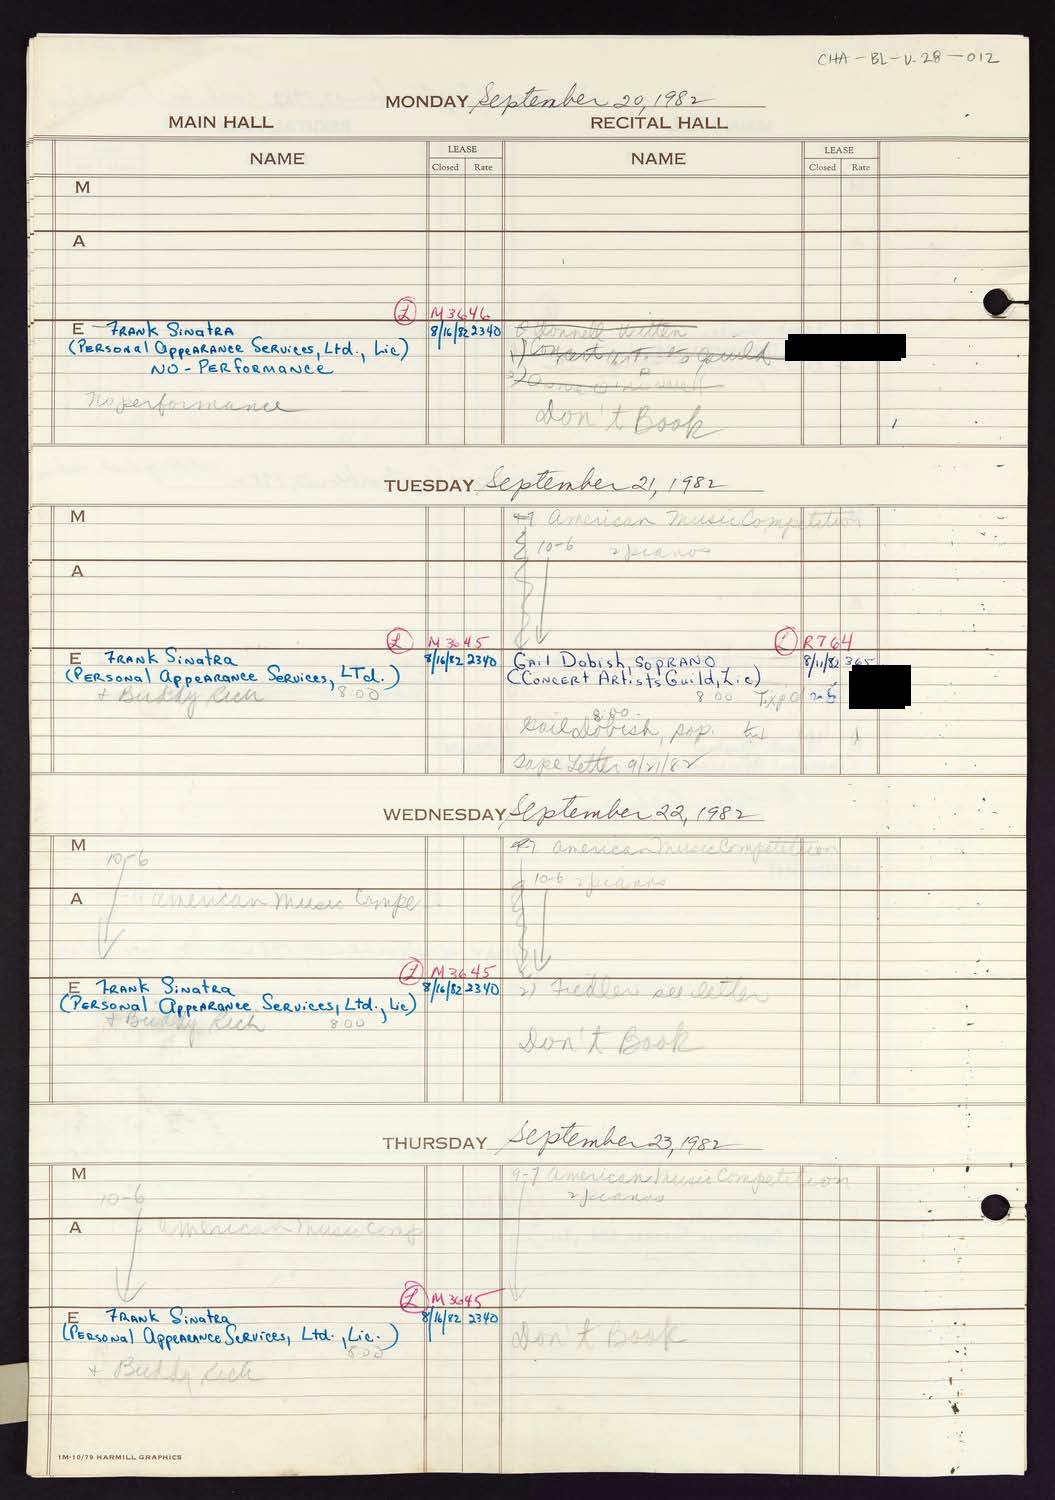 CHA-BL-V-28-012
MONDAY September 20, 1982
MAIN HALL RECITAL HALL
NAME LEASE NAME LEASE
Closed Rate Closed Rate
M
A
L M3646
E Frank Sinatra 8/16/82 2340
(Personal Appearance Services, Ltd., Lic)
NO-PERFORMANCE
No performance
Don't Book
TUESDAY September 21, 1982
M American Music Competition
10-6 2 pianos
A
L M3645 L R764
E Frank Sinatra 8/16/82 2340 Gail Dobish, SOPRANO 8/11/82 365
(Personal Appearance Services, LTd.) (Concert Artists Guild, Lic)
+ Buddy Rich 8:00 8 00
8:00
Gail Dobish, sop.
Tape Letter 9/21/82
WEDNESDAY September 22, 1982
M American Music Competition
10-6 10-6 2 pianos
A American Music Compe
L M3645
E Frank Sinatra 8/16/82 2340 2) Fiedler see letter
(Personal Appearance Services, Ltd., Lic)
+ Buddy Rich 8:00
Don't Book
THURSDAY September 23, 1982
M 9-7 American Music Competition
10-6 2 pianos
A American Music Comp
L M3645
E Frank Sinatra 8/16/82 2340 Don't Book
(Personal Appearance Services, Ltd., Lic.)
8:00
+ Buddy Rich
1M-10/79 HARMILL GRAPHICS